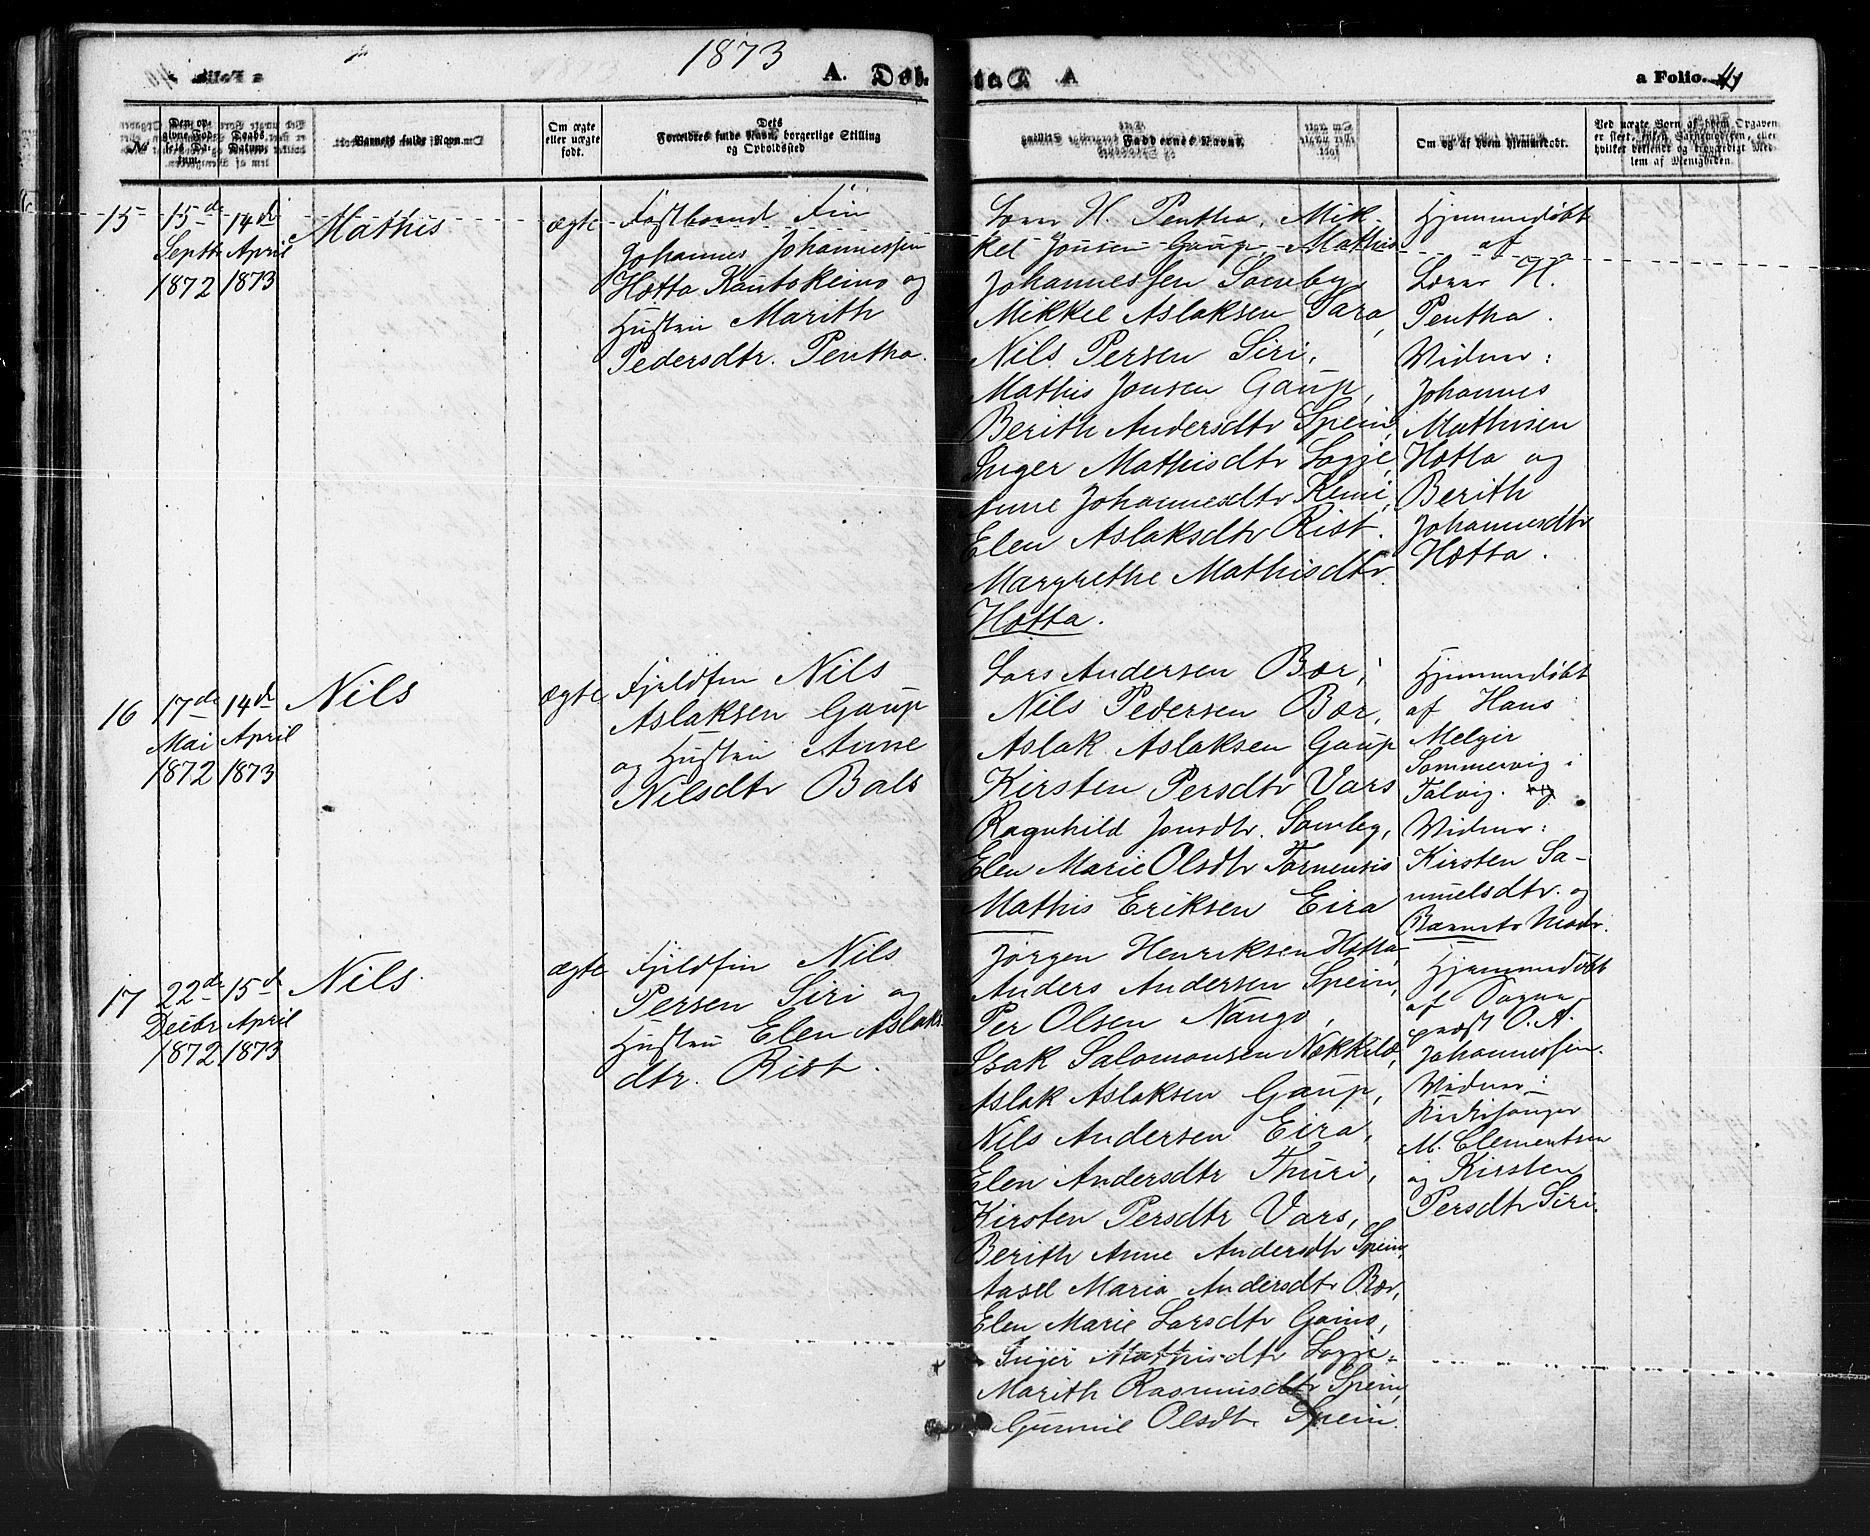 1873
A.
Døb
te.
A
a Folio. 41
No
Den op-
givne Fød-
sels Da-
tum.
Daabs
Datum.
Barnets fulde Navn.
Om ægte
eller uægte
født.
Dets
Forældres fulde Navn, borgerlige Stilling
og Opholdssted
Faddernes Navne.
Om og af hvem hjemmedøbt.
Ved uægte Børn af hvem Opgaven
er skeet, enten Barnemoderen, eller
hvilket vidende og troværdigt Med-
lem af Menigheden.
15
15de
Septbr
1872
14de
April
1873
Mathis
ægte
Fastboend Fin
Johannes Johannessen
Hætta Kautokeino og
Hustru Marith
Pedersdtr. Pentha.
Lars H. Pentha, Mik-
kel Jonsen Gaup, Mathis
Johannessen Somby
Mikkel Aslaksen Sara,
Nils Persen Siri,
Mathis Jonsen Gaup,
Berith Andersdtr Spein,
Inger Mathisdtr Logje,
Anne Johannesdtr Kemi,
Elen Aslaksdtr Rist.
Margrethe Mathisdtr
Hætta.
Hjemmedøbt
af
Lars H.
Pentha.
Vidner:
Johannes
Mathisen
Hætta og
Berith
Johannesdtr
Hætta.
16
17de
Mai
1872
14de
April
1873
Nils
ægte
Fjeldfin Nils
Aslaksen Gaup
og Hustru Anne
Nilsdtr Bals
Lars Andersen Bær,
Nils Pedersen Bær,
Aslak Aslaksen Gaup
Kirsten Persdtr Vars
Ragnhild Jonsdtr. Somby,
Elen Marie Olsdtr Tornensis
Mathis Eriksen Eira
Hjemmedøbt
af Hans
Melgir
Sommervig i
Talvig. og
Vidner:
Kirsten Sa-
muelsdtr. og
Barnets Moder.
17
22de
Decbr
1872
15de
April
1873
Nils.
ægte
Fjeldfin Nils
Persen Siri og
Hustru Elen Aslaks-
dtr. Rist.
Jørgen Henriksen Hætta,
Anders Andersen Spein,
Per Olsen Nango,
Isak Salomonsen Nækkilæ,
Aslak Aslaksen Gaup,
Nils Andersen Eira,
Elen Andersdtr Thuri,
Kirsten Persdtr Vars,
Berith Anne Andersdtr Spein,
Aasel Maria Andersdtr Bær,
Elen Marie Larsdtr Gaino,
Inger Mathisdtr Logje.
Marith Rasmusdtr Spein,
Gunnil Olsdtr Spein.
Hjemmedøbt
af Sogne-
præst O. A.
Johannessen.
Vidner:
Kirkesanger
M. Clementsen
og Kirsten
Persdtr Siri.